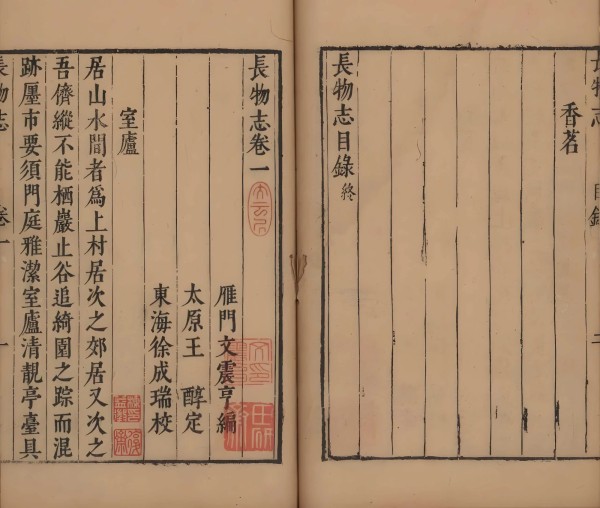 長物志 目錄 二
香茗
長物志目錄 終
長物志卷一
雁門文震亨編
太原王 醇定
東海徐成瑞校
室廬
居山水間者爲上村居次之郊居又次之
吾儕縱不能栖巖止谷追綺園之踪而混
跡廛市要須門庭雅潔室廬清靚亭臺具
長物志 卷一 一